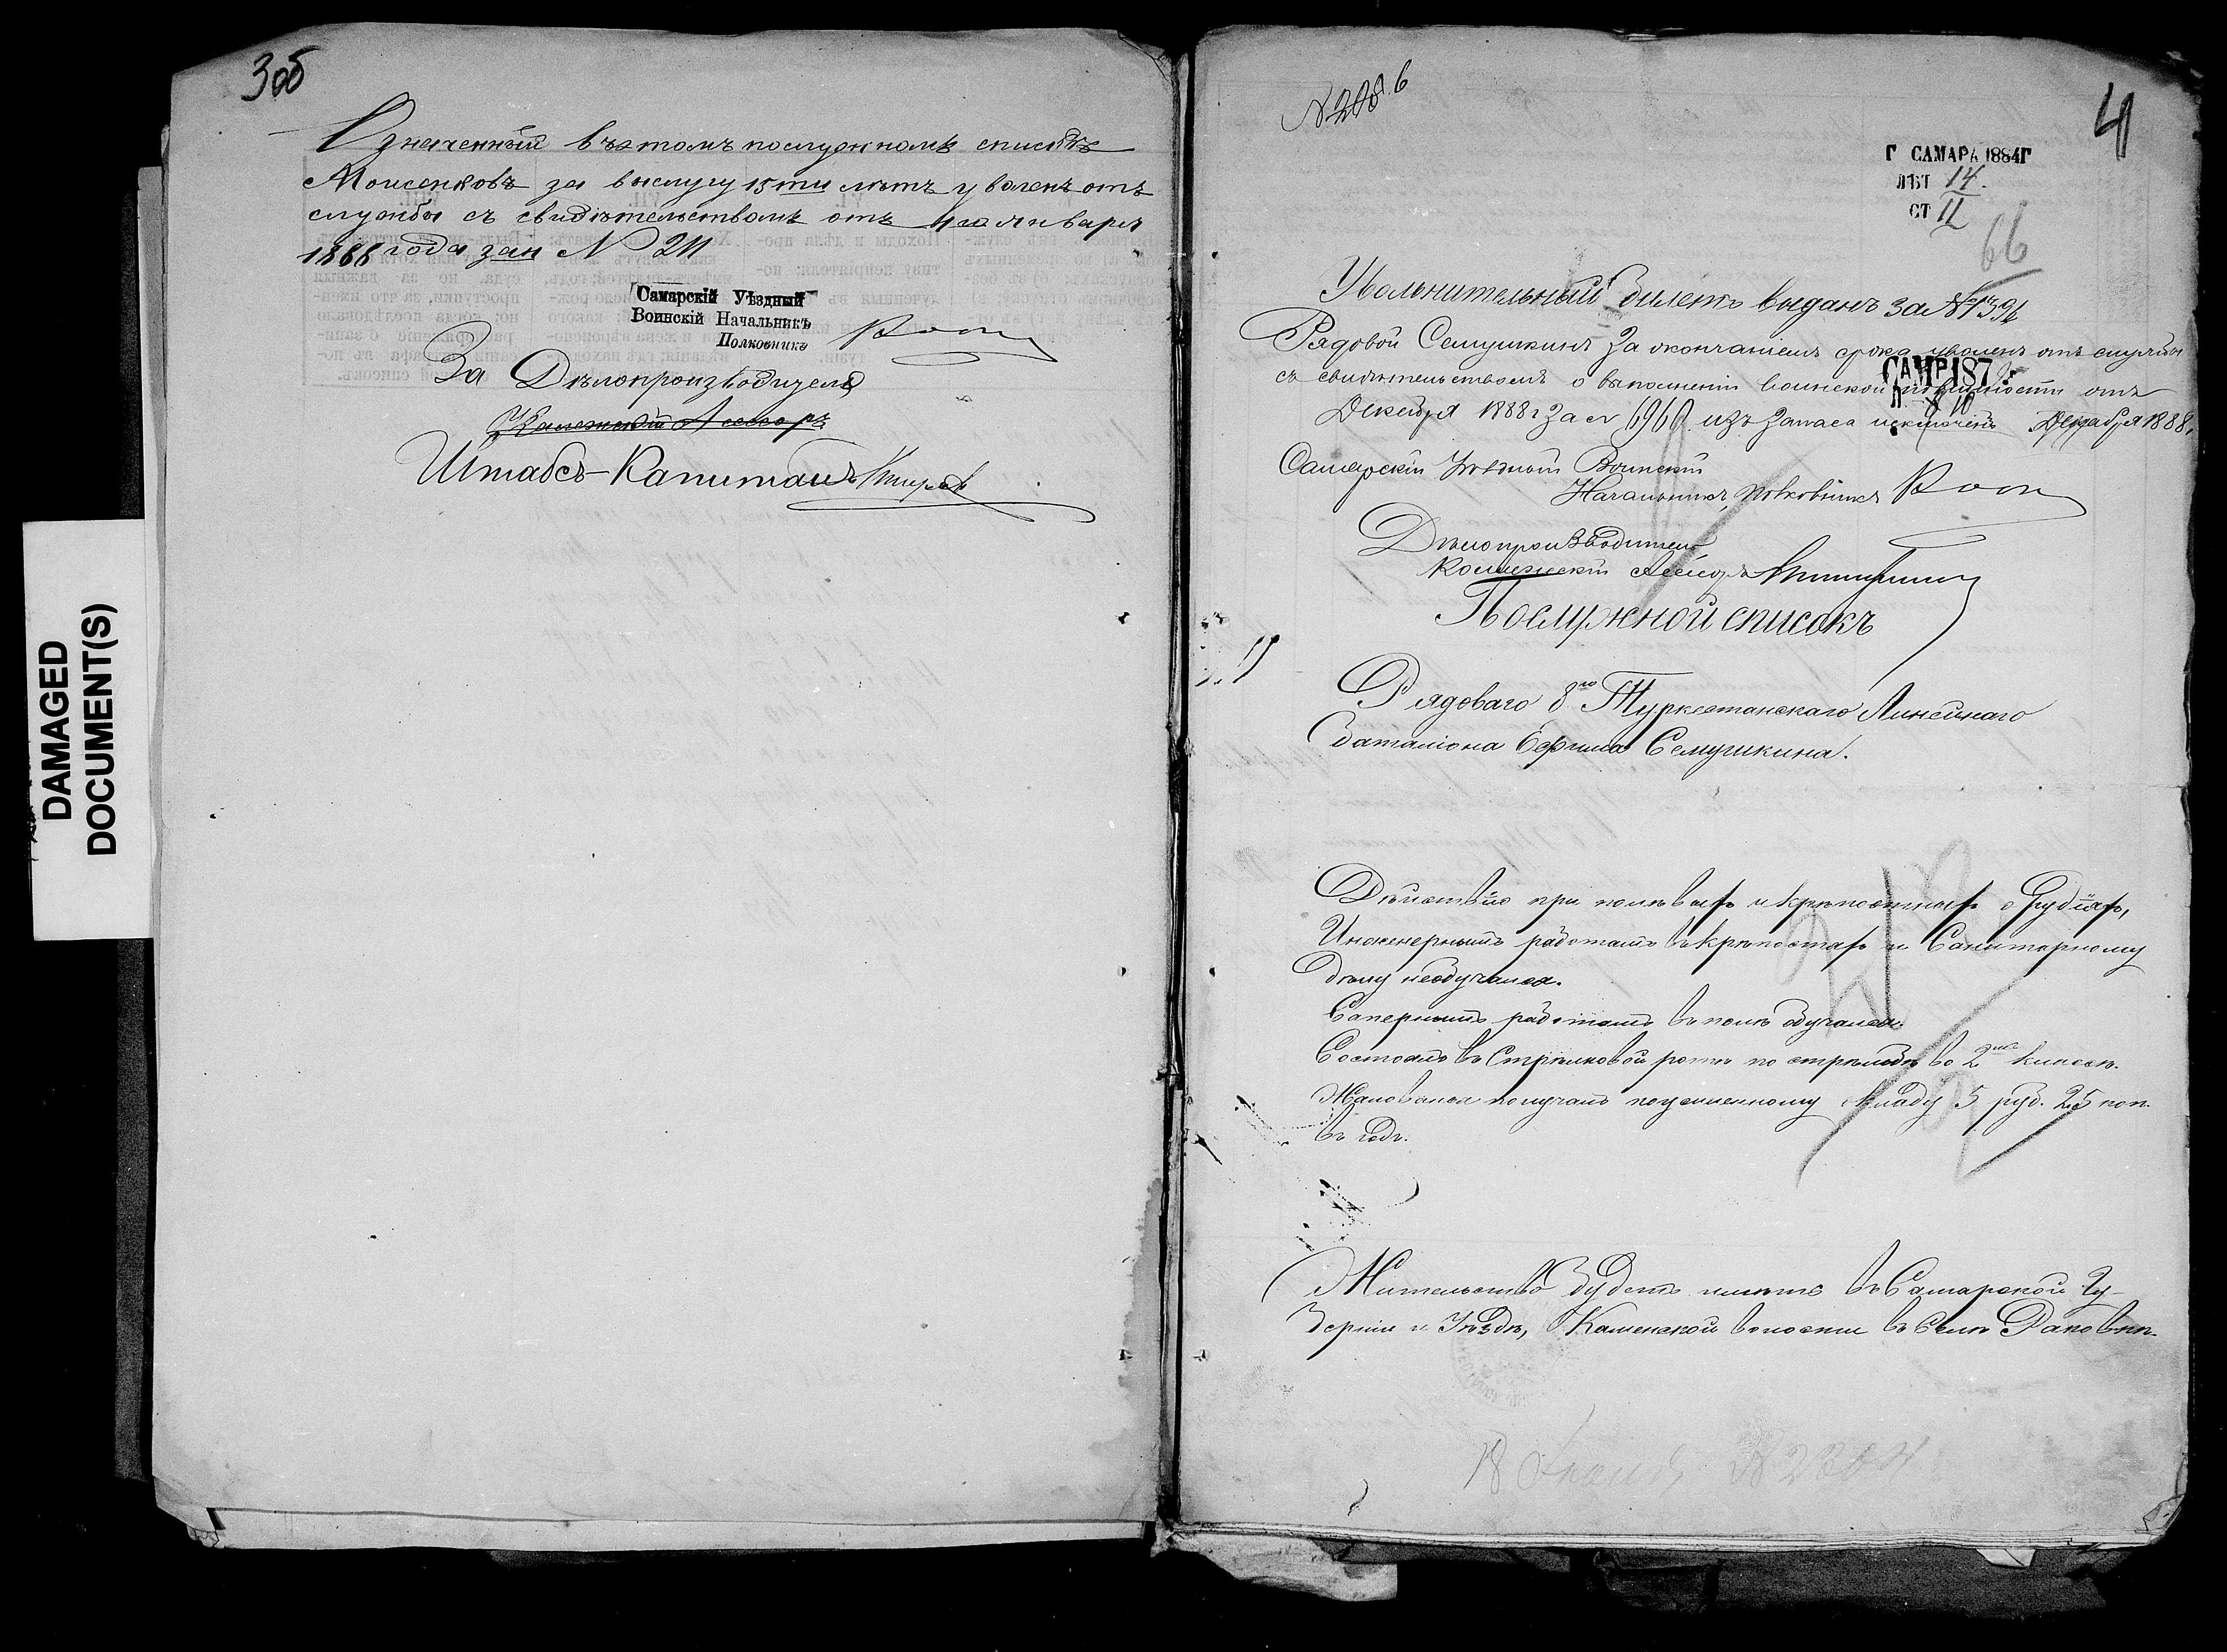 3об
Означенный въ этомъ послужномъ списке
Моисенковъ за выслугу 15ти лѣтъ уволенъ отъ
службы съ свидѣтельствомъ отъ января
1888 года за № 211
Самарскій Уѣздный
Воинскій Начальникъ
Полковникъ
За Дѣлопроизводителя
Штабсъ-Капитанъ
DAMAGED
DOCUMENT(S)
4
Г САМАРА 1884Г
ЛѢТ 14.
СТ II
66
Увольнительный билетъ выданъ за №
Рядовой Семушкинъ за окончаніемъ срока уволенъ отъ службы
съ свидѣтельствомъ о выполненіи воинской повинности отъ
Декабря 1888 г за № 6960 изъ запаса исключенъ Декабря 1888 г.
Самарскій Уѣздный Воинскій
Начальникъ, Полковникъ
Дѣлопроизводитель
Коллежскій Ассесоръ
Послужной списокъ
Рядоваго 8го Туркестанскаго Линейнаго
баталіона Ефима Семушкина.
Дѣйствію при полевыхъ и крѣпостныхъ орудіяхъ,
Инженернымъ работамъ въ крѣпостяхъ и Санитарному
дѣлу необучался.
Сапернымъ работамъ въ полѣ обучался.
Состоялъ въ Стрѣлковой ротѣ по стрѣльбѣ во 2мъ классѣ.
Жалованья получалъ по усиленному окладу 5 руб. 25 коп.
въ годъ.
Жительство будетъ имѣть въ Самарской Гу-
берніи и Уѣздѣ, Каменской волости въ селѣ Раковкѣ.